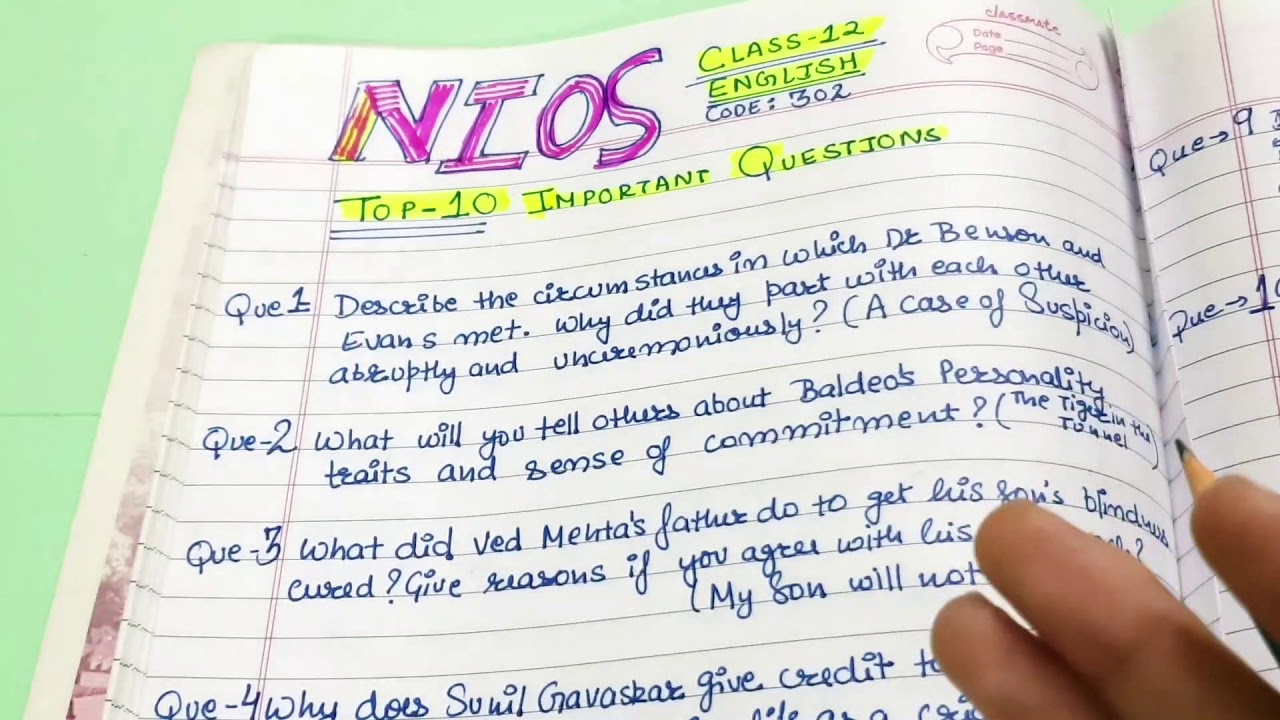 classmate
Date
Page
NIOS
CLASS-12
ENGLISH
CODE: 302
TOP-10 IMPORTANT QUESTIONS
Que 1 Describe the circumstances in which Dr Benson and
Evans met. Why did they part with each other
abruptly and unceremoniously? (A Case of Suspicion)
Que-2 What will you tell others about Baldeo's Personality
traits and sense of commitment? (The Tiger in the
Tunnel)
Que-3 What did Ved Mehta's father do to get his son's blindness
cured? Give reasons if you agree with his
(My Son will not
Que-4 Why does Sunil Gavaskar give credit to
life as a
Que→9
Que→10